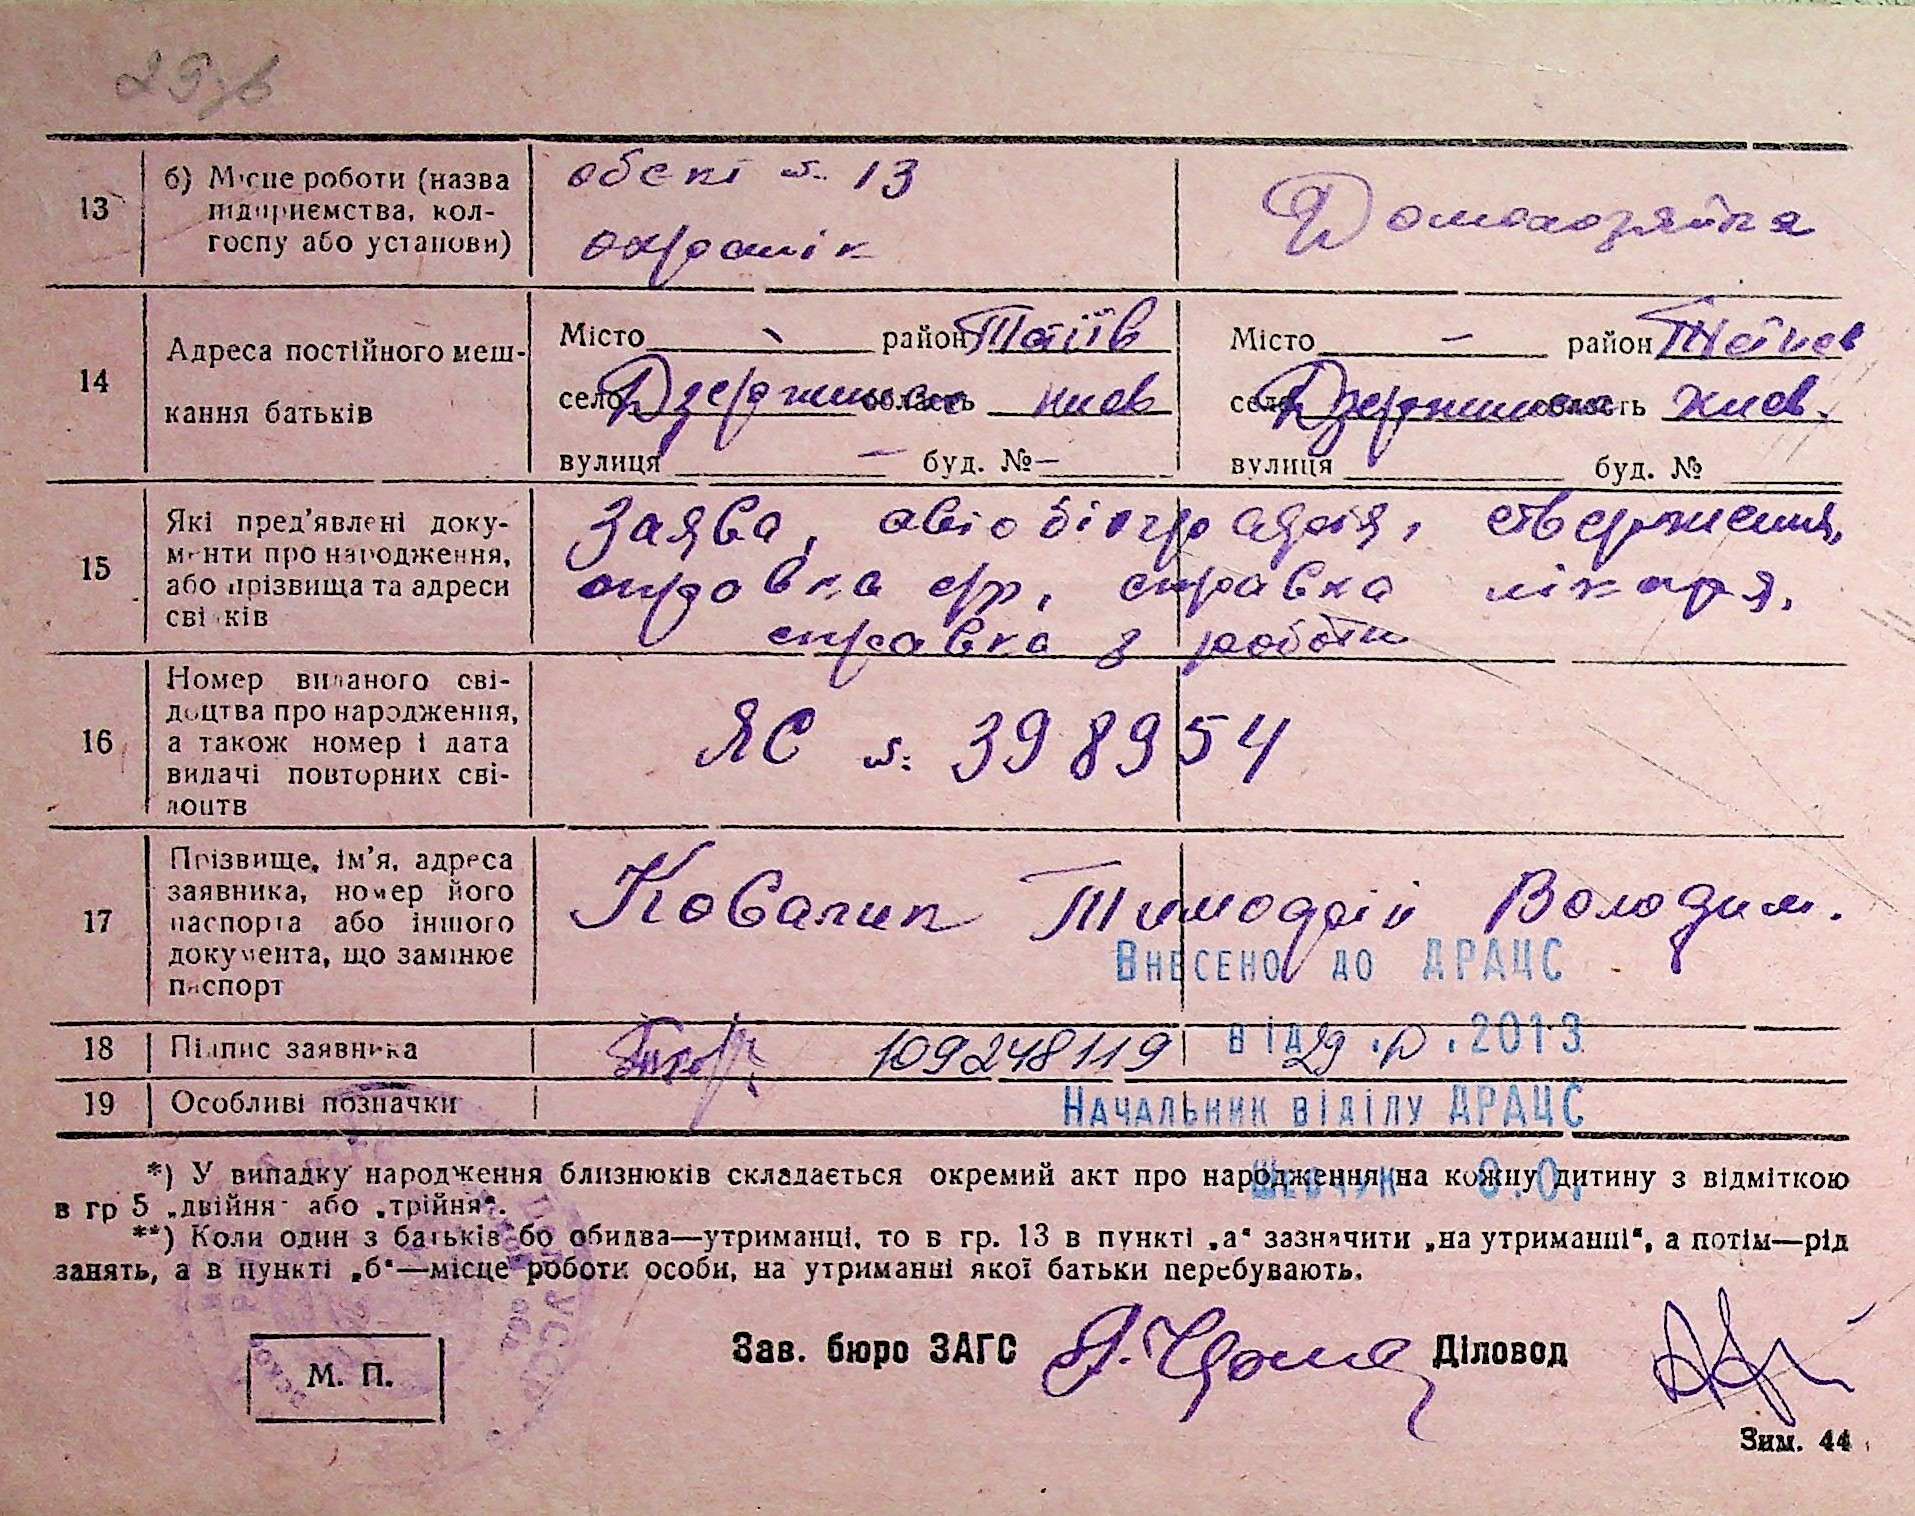 13
б) Місце роботи (назва
підприємства, кол-
госпу або установи)
обєкт №. 13
охранік
Домохозяйка
14
Адреса постійного меш-
кання батьків
Місто район
село Дзержинське область Київ
вулиця — буд. № —
Місто — район
село Дзержинське область Київ.
вулиця буд. №
15
Які пред'явлені доку-
менти про народження,
або прізвища та адреси
свідків
Заява, автобіографія, ствержения,
справка лікаря,
справка з роботи
16
Номер виданого сві-
доцтва про народження,
а також номер і дата
видачі повторних сві-
доцтв
ЯС №: 398954
17
Прізвище, ім'я, адреса
заявника, номер його
паспорта або іншого
документа, що замінює
паспорт
Тимофій Володим.
Внесено до ДРАЦС
18
Підпис заявника
109248119
від 29. .2013
19
Особливі позначки
Начальник відділу ДРАЦС
Шевчук О.О.
*) У випадку народження близнюків складається окремий акт про народження на кожну дитину з відміткою
в гр 5 „двійня" або „трійня".
**) Коли один з батьків бо обидва—утриманці, то в гр. 13 в пункті „а" зазначити „на утриманні", а потім—рід
занять, а в пункті „б"—місце роботи особи, на утриманні якої батьки перебувають.
М. П.
Зав. бюро ЗАГС
Діловод
Зим. 44